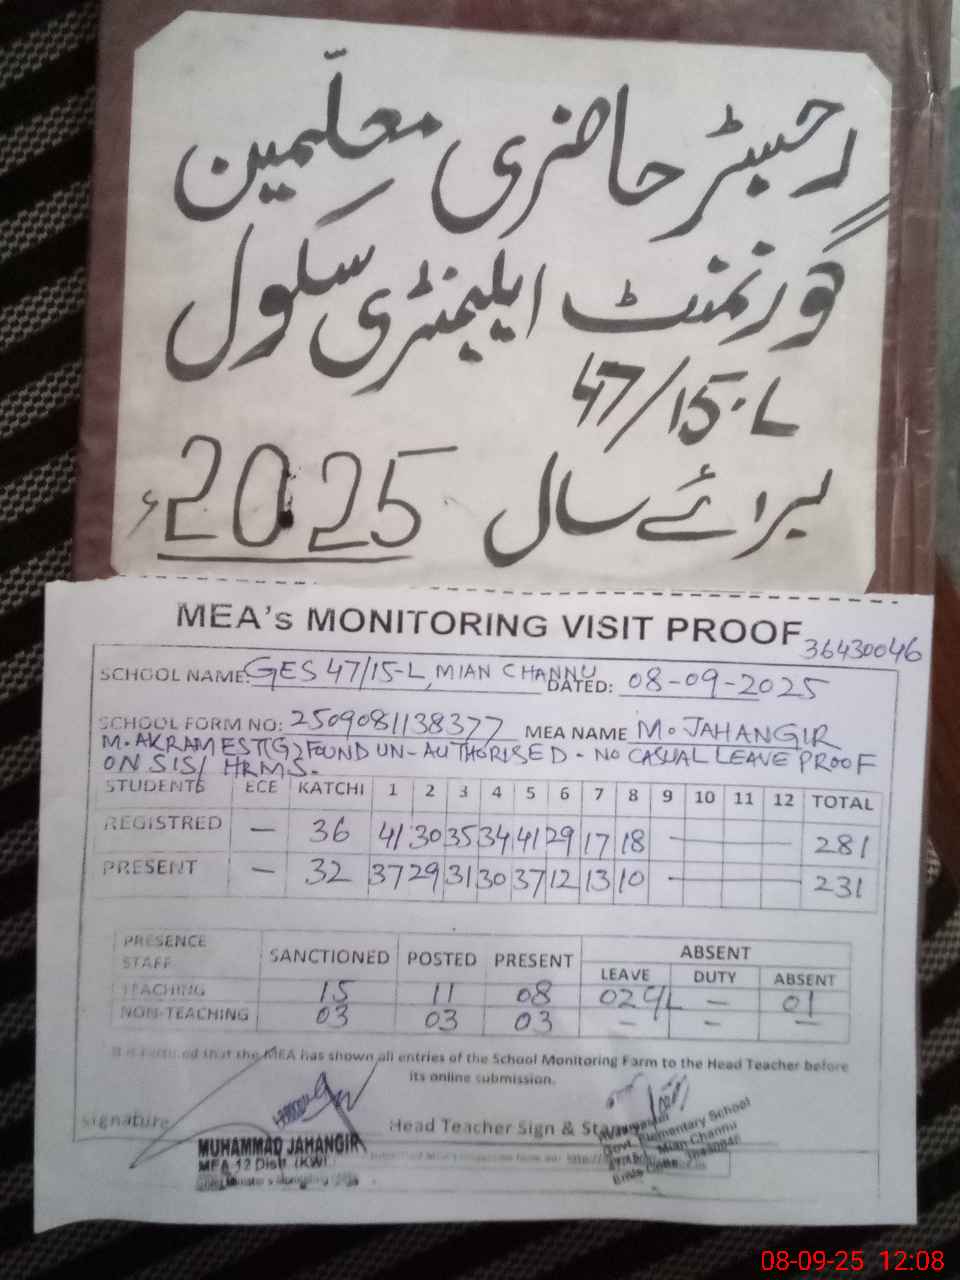 رجسٹر حاضری معلّمین
گورنمنٹ ایلیمنٹری سکول
47/15-L
برائے سال 2025ء
MEA's MONITORING VISIT PROOF 36430046
SCHOOL NAME: GES 47/15-L, MIAN CHANNU DATED: 08-09-2025
SCHOOL FORM NO: 2509081138377 MEA NAME M. JAHANGIR
M. AKRAM EST(G) FOUND UN-AUTHORISED - NO CASUAL LEAVE PROOF
ON SIS/ HRMS.
STUDENTS ECE KATCHI 1 2 3 4 5 6 7 8 9 10 11 12 TOTAL
REGISTRED — 36 41 30 35 34 41 29 17 18 — 281
PRESENT — 32 37 29 31 30 37 12 13 10 — 231
PRESENCE STAFF SANCTIONED POSTED PRESENT ABSENT
LEAVE DUTY ABSENT
TEACHING 15 11 08 02 CL — 01
NON-TEACHING 03 03 03 — — —
It is certified that the MEA has shown all entries of the School Monitoring Farm to the Head Teacher before
its online submission.
signature Head Teacher Sign &
MUHAMMAD JAHANGIR
MEA 12 Distt. (KW)
Govt. Elementary School
Mian Channu
08-09-25 12:08